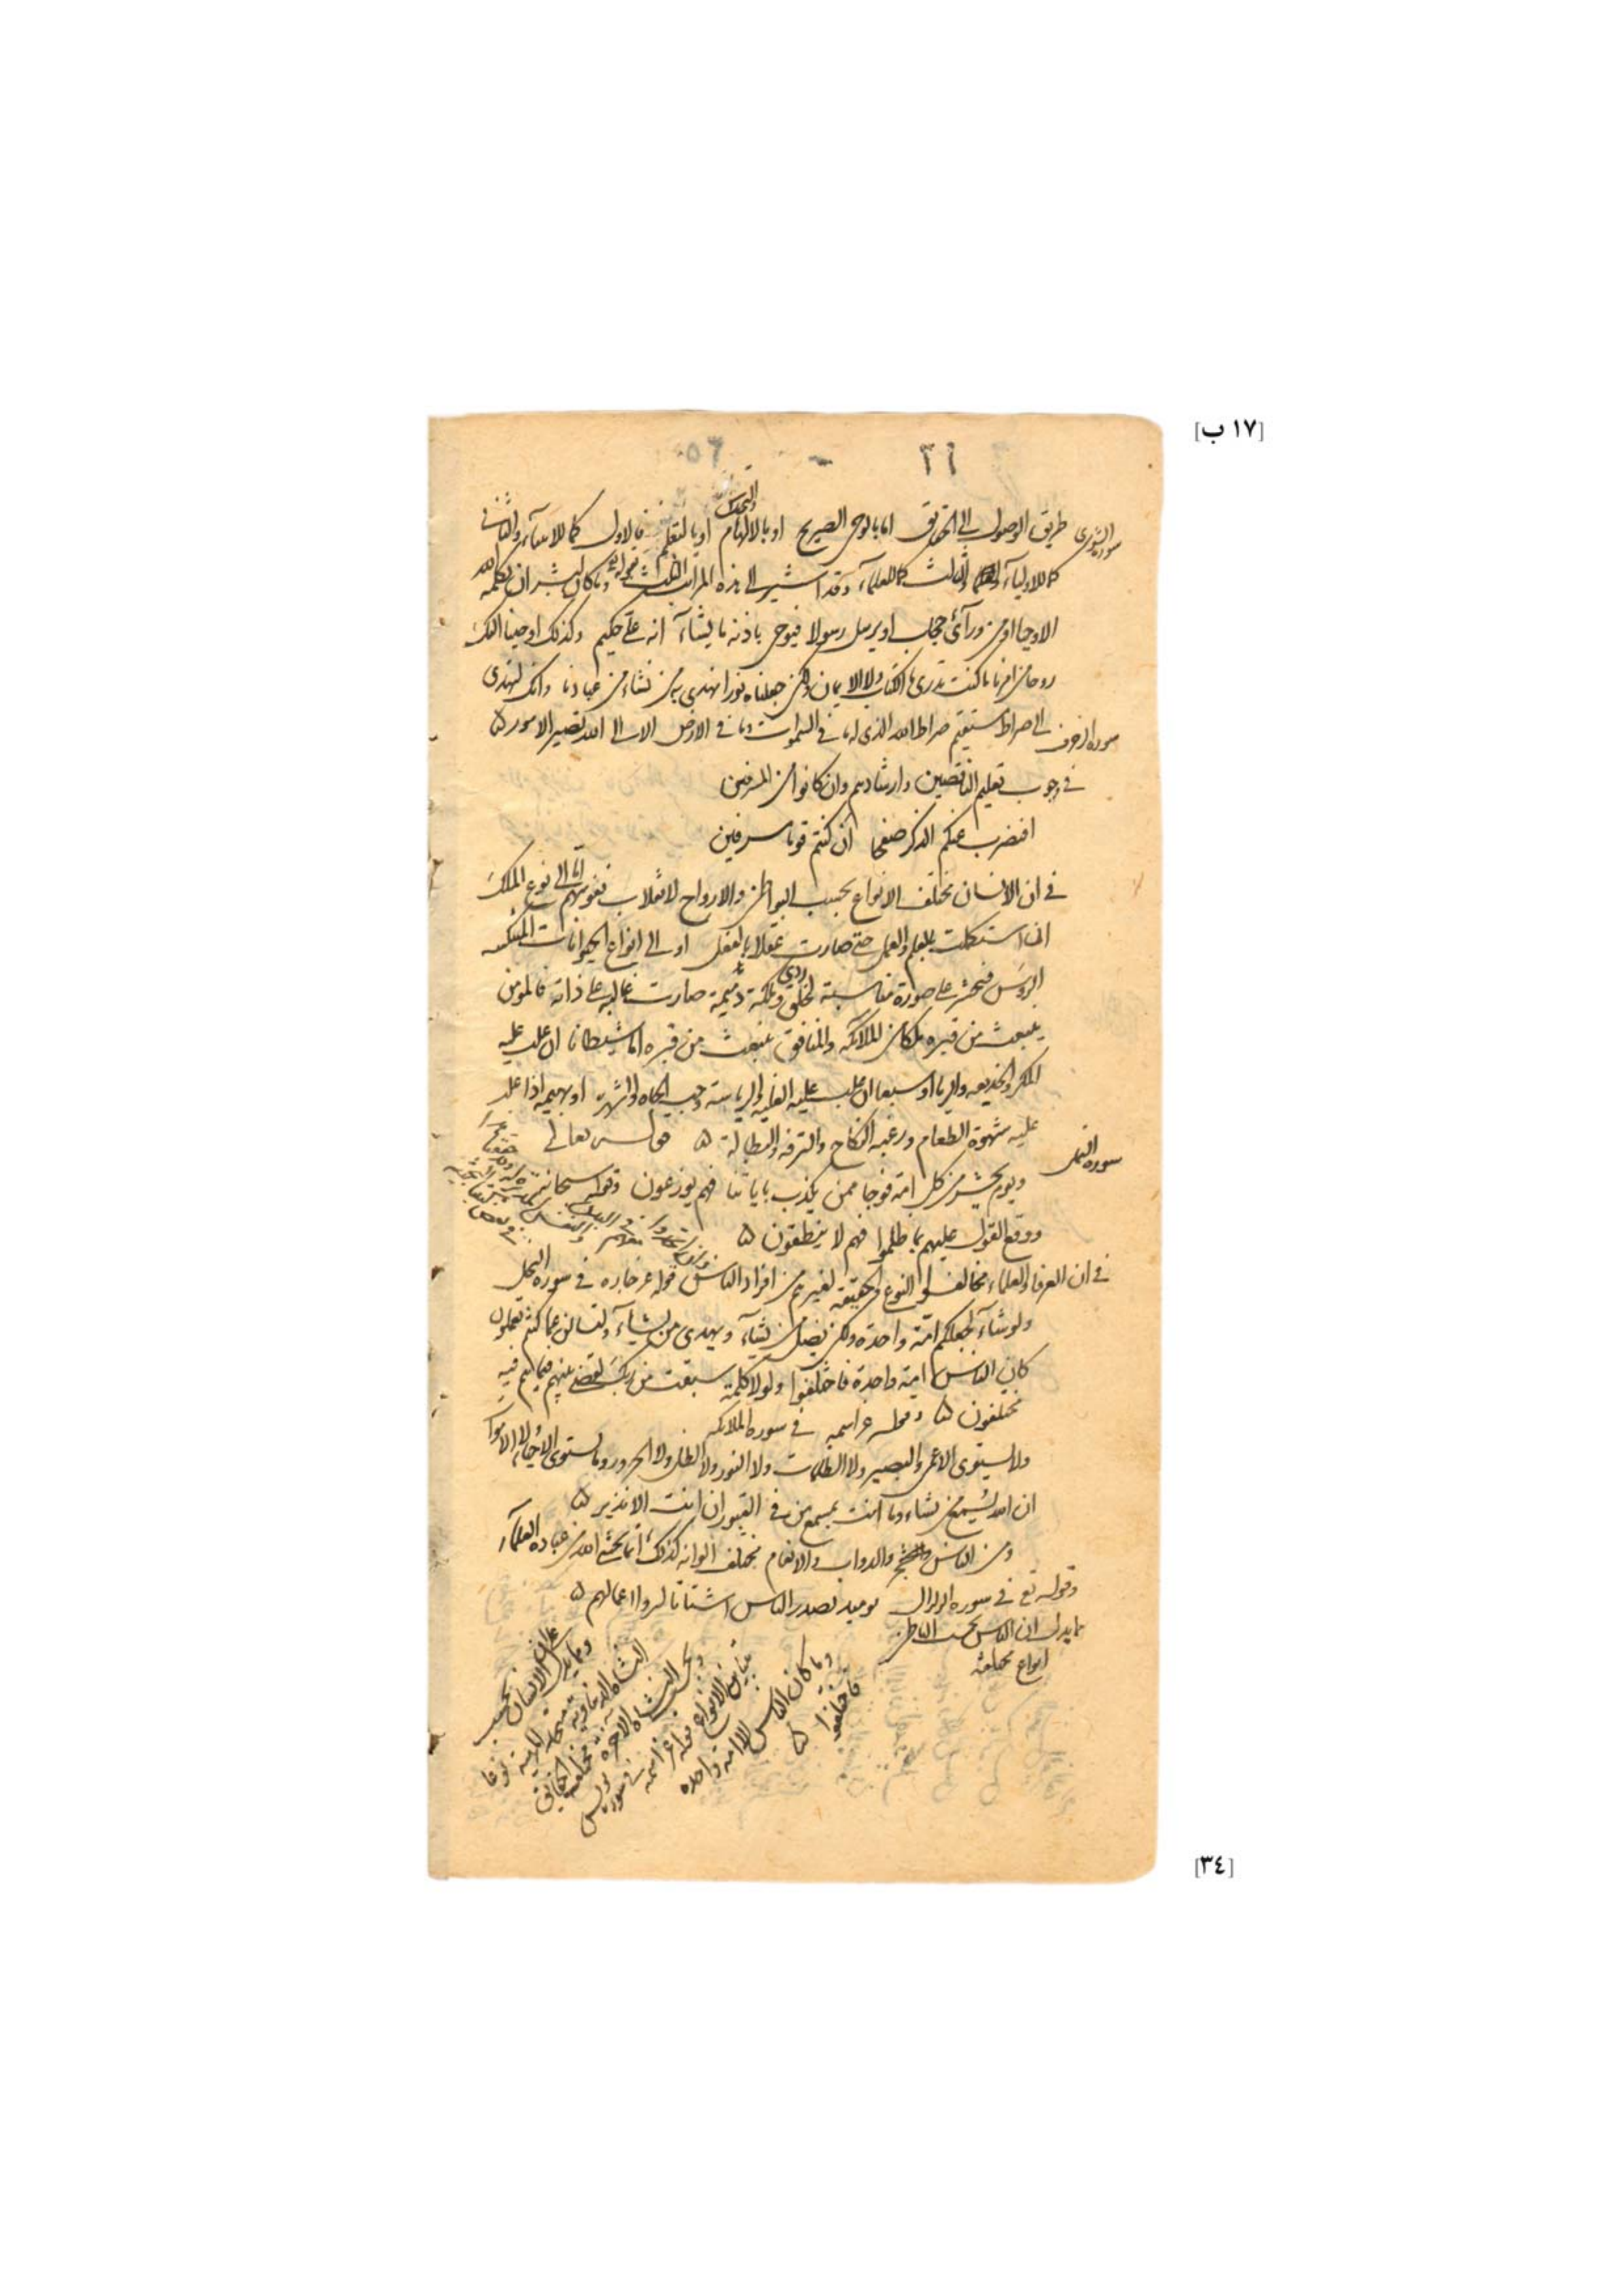 [١٧ ب]
سورة الشورى
طريق الوصول الى الحقايق اما بالوحى الصريح او بالالهام او بالتعلم فالاول كما للانبيآء والثانى
كما للاوليآء والثالث كما للعلمآء وقد اشير الى هذه المراتب الثلث بقوله وما كان لبشر ان يكلمه الله
الا وحيا او من ورآئ حجاب او يرسل رسولا فيوحى باذنه ما يشآء انه على حكيم وكذلك اوحينا اليك
روحا من امرنا ما كنت تدرى ما الكتاب ولا الايمان ولكن جعلناه نورا نهدى به من نشاء من عبادنا وانك لتهدى
الى صراط مستقيم صراط الله الذى له ما فى السموات وما فى الارض الا الى الله تصير الامور ۵
سورة الزخرف
فى وجوب تعليم الناقصين وارشادهم وان كانوا من المسرفين
افنضرب عنكم الذكر صفحا ان كنتم قوما مسرفين
فى ان الانسان مختلف الانواع بحسب البواطن والارواح لانقلاب نفوسهم اما الى نوع الملك
ان استكملت بالعلم والعمل حتى صارت عقلا بالفعل او الى انواع الحيوانات المنتكسة
الرؤس فتحشر على صورة مناسبة لخلق ردي وملكة ذميمة صارت غالبة على ذاته فالمؤمن
ينبعث من قبره ملكا من الملائكة والمنافق ينبعث من قبره اما شيطانا ان غلب عليه
المكر والخديعه والريا او سبعا ان غلب عليه الغلبة والرياسة وحب الجاه والشهرة او بهيمه اذا غلب
عليه شهوة الطعام ورغبة النكاح والترفه والبطالة ۵ قوله تعالى
سورة النمل
ويوم نحشر من كل امة فوجا ممن يكذب باياتنا فهم يوزعون وقوله سبحانه
ووقع القول عليهم بما ظلموا فهم لا ينطقون ۵
فى ان العرفا والعلماء مخالفوا النوع والحقيقه لغيرهم من افراد الناس قوله عز ذكره فى سورة النحل
ولو شآء لجعلكم امة واحدة ولكن يضل من يشآء ويهدى من يشآء ولتسالن عما كنتم تعملون
كان الناس امة واحدة فاختلفوا ولولا كلمة سبقت من ربك لقضى بينهم فيما هم فيه
مختلفون ۵ وقوله عز اسمه فى سورة الملائكه
ولا يستوى الاعمى والبصير ولا الظلمات ولا النور ولا الظل ولا الحرور وما يستوى الاحيا ولا الاموات
ان الله يسمع من يشاء وما انت بمسمع من فى القبور ان انت الا نذير ۵
ومن الناس والدواب والانعام مختلف الوانه كذلك انما يخشى الله من عباده العلمآء
وقوله تع فى سورة الزلزال يوميذ يصدر الناس اشتاتا ليروا اعمالهم ۵
مما يدل ان الناس بحسب الباطن
انواع مختلفة
ومما يدل على ان الانسان بحسب
النشاة الدنياوية متحد المهية نوعا
وبحسب النشاة الاخرة مختلفة الحقايق
متباين الانواع قوله عز اسمه فى سورة يونس
وما كان الناس الا امة واحدة
فاختلفوا ۵
[٣٤]